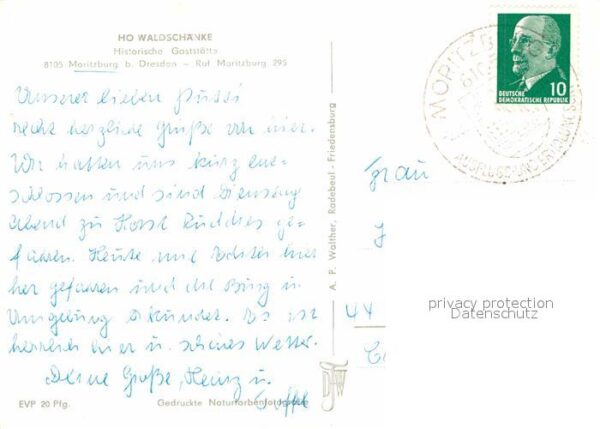 HO WALDSCHÄNKE
Historische Gaststätte
8105 Moritzburg b. Dresden – Ruf Moritzburg 295
Unserer lieben Pussi
recht herzliche Grüße von hier.
Wir hatten uns kurz ent-
schlossen und sind Dienstag
Abend zu Horst ge-
fahren. Heute mit hier
her gefahren und die Burg u.
Umgebung erkundet. Es ist
herrlich hier u. schönes Wetter.
Deine Große, Heinz u.
EVP 20 Pfg.
Gedruckte Naturfarbenfotografie
A. P. Walther, Radebeul - Friedensburg
MORITZB
810
AUSFLUGS- UND ERHOLUNGS
DEUTSCHE
DEMOKRATISCHE REPUBLIK
10
Frau
privacy protection
Datenschutz